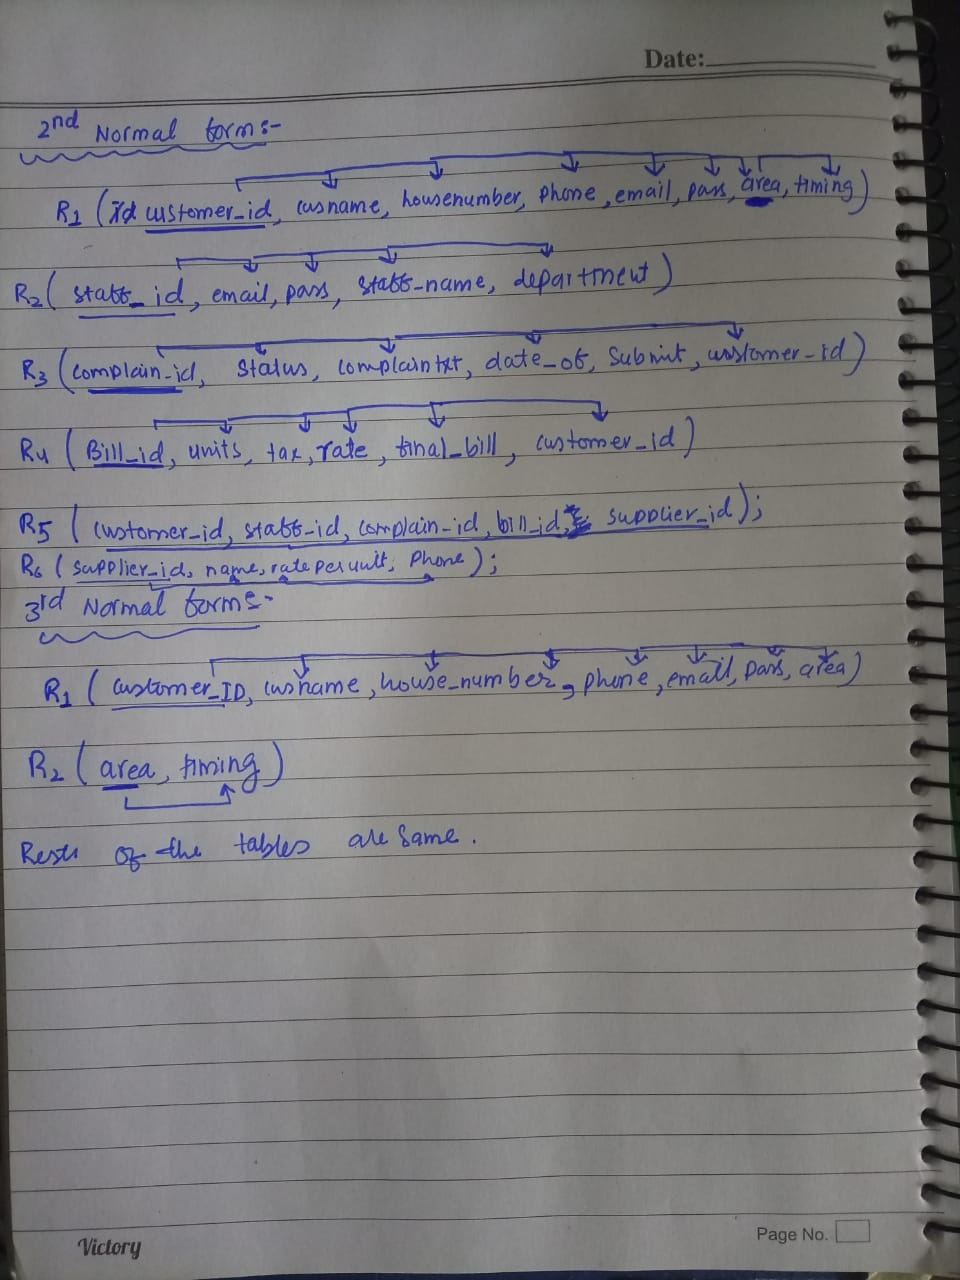 Date:
2nd Normal form:-
R1 (Id customer_id, cusname, housenumber, phone, email, pass, area, timing)
R2 ( staff_id, email, pass, staff-name, department)
R3 (complain-id, status, complaintxt, date_of, submit, customer-id)
R4 (Bill_id, units, tax, rate, final_bill, customer_id)
R5 ( customer_id, staff-id, complain-id, bill_id, supplier_id);
R6 ( supplier_id, name, rate per unit, Phone);
3rd Normal form:-
R1 ( customer_ID, cusname, house_number, phone, email, pass, area)
R2 ( area, timing)
Rests of the tables are same.
Victory
Page No.